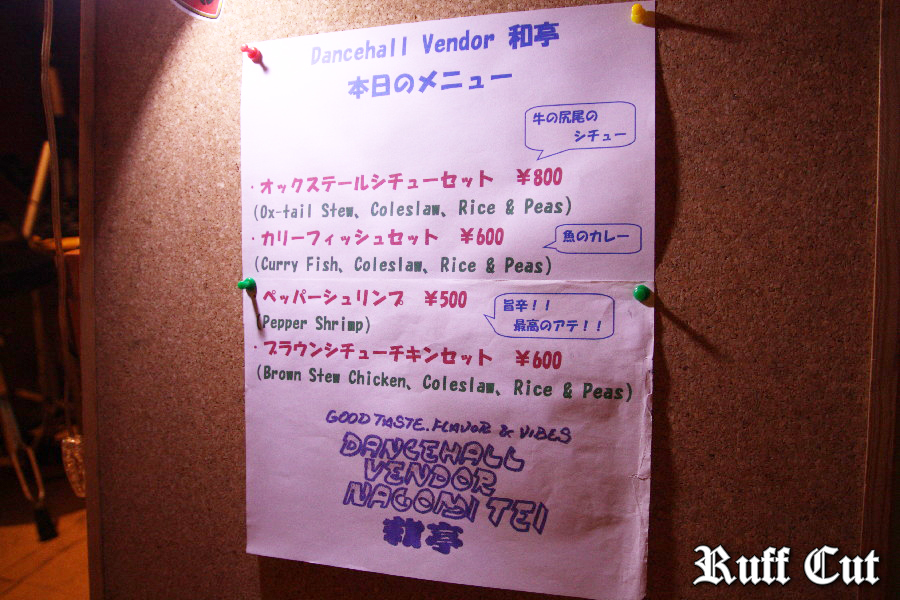 Dancehall Vendor 和亭
本日のメニュー
牛の尻尾の
シチュー
・オックステールシチューセット ¥800
(Ox-tail Stew、Coleslaw、Rice & Peas)
・カリーフィッシュセット ¥600
魚のカレー
(Curry Fish、Coleslaw、Rice & Peas)
ペッパーシュリンプ ¥500
旨辛!!
最高のアテ!!
(Pepper Shrimp)
・ブラウンシチューチキンセット ¥600
(Brown Stew Chicken、Coleslaw、Rice & Peas)
GOOD TASTE. FLAVOR & VIBES
DANCEHALL
VENDOR
NAGOMI TEI
亭
Ruff Cut